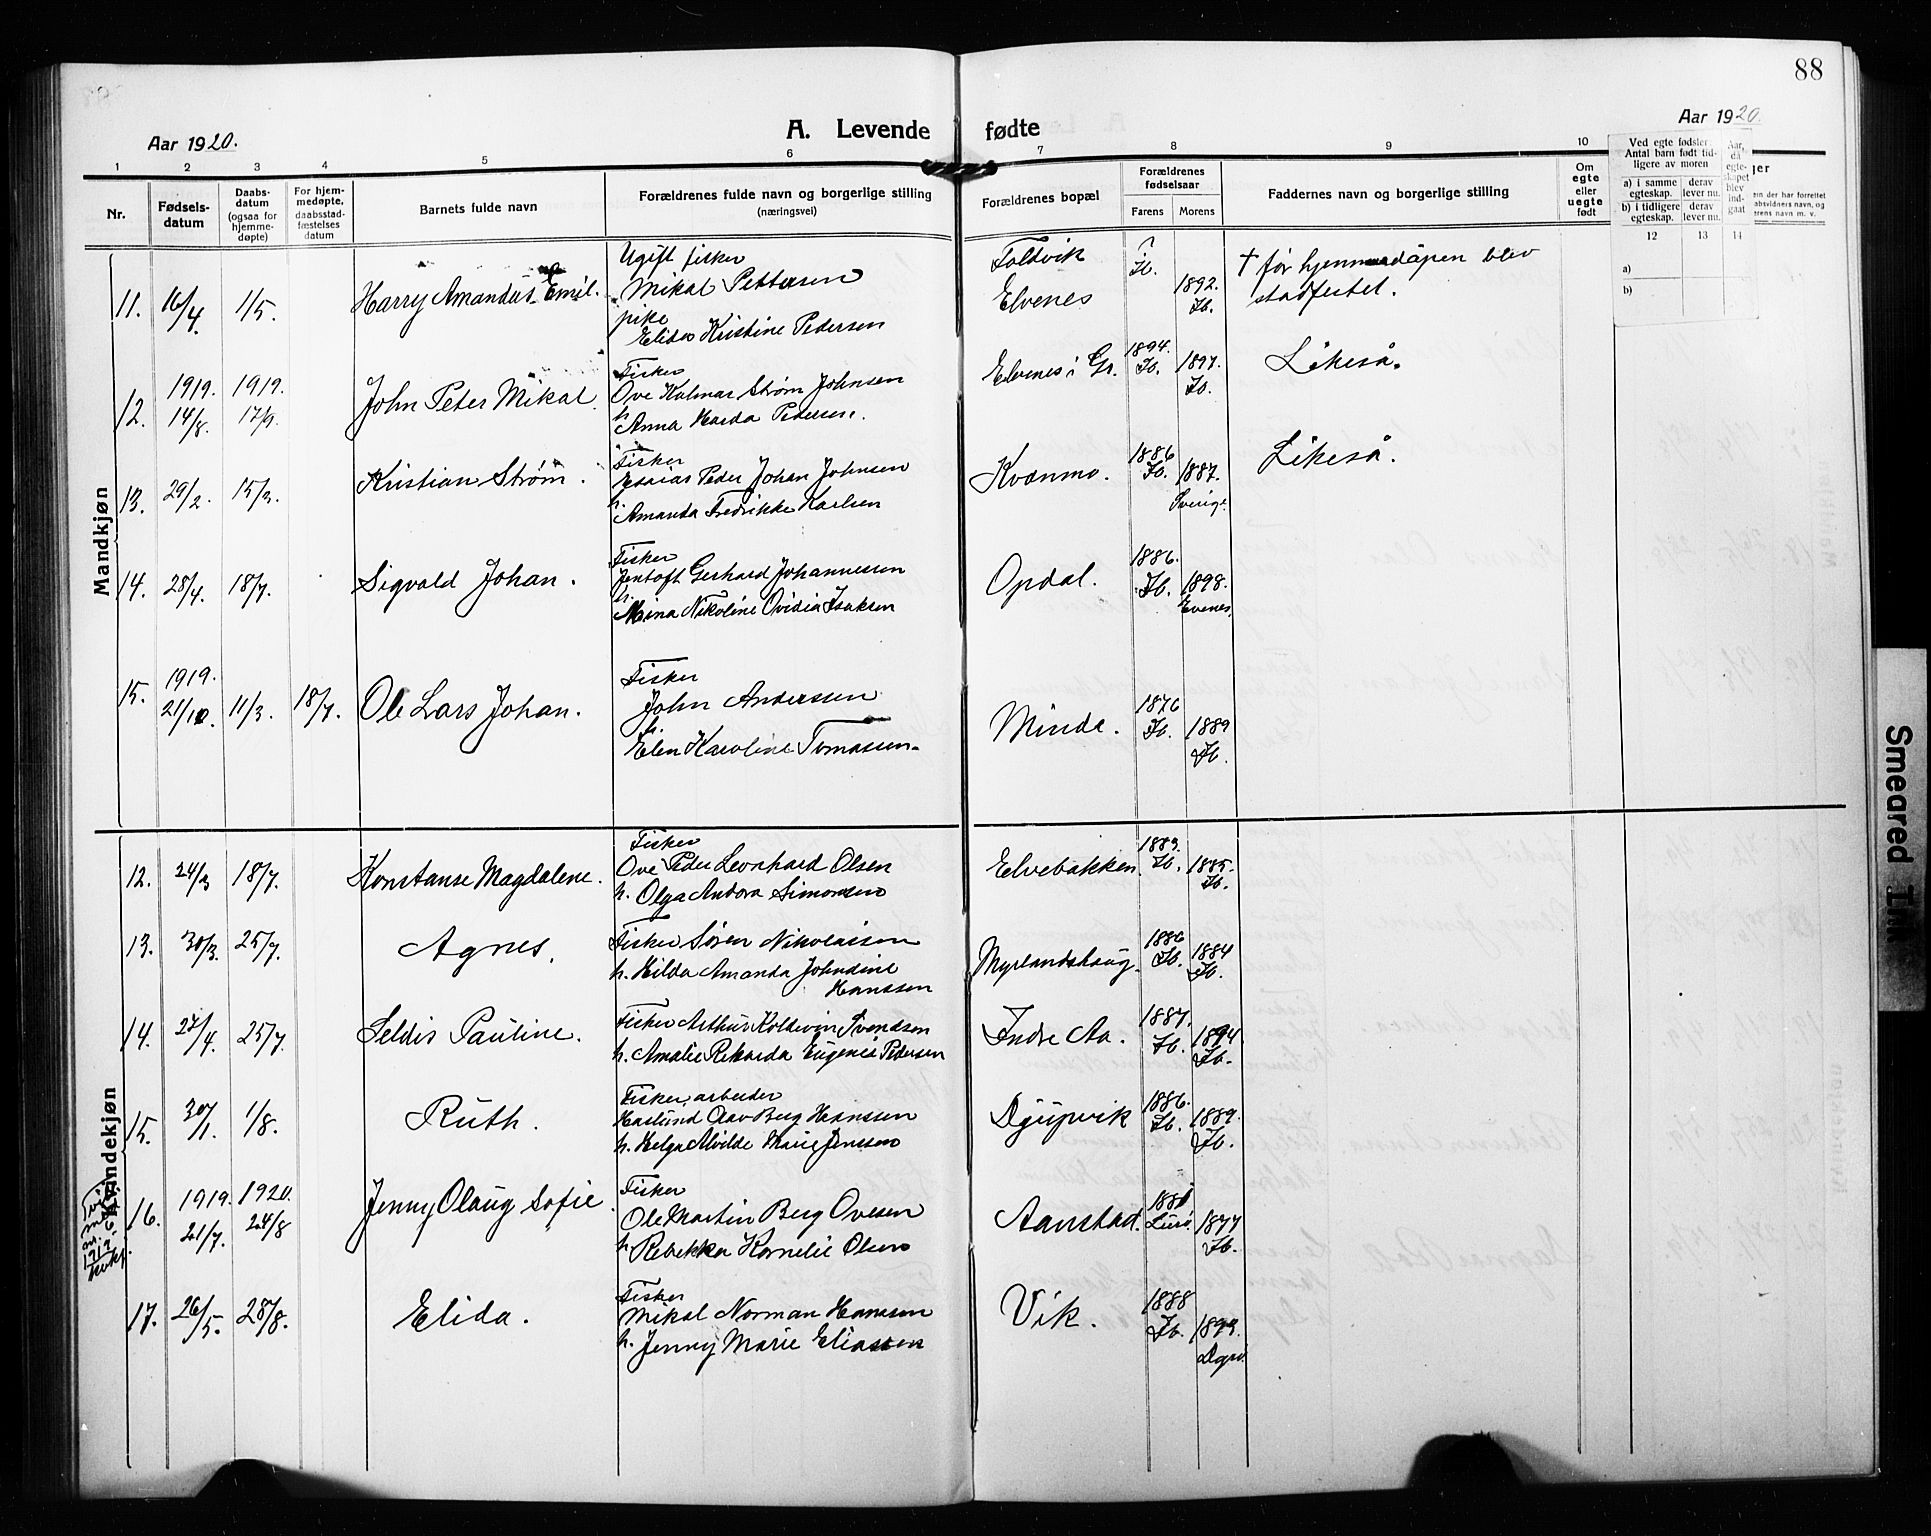 88
A. Levende fødte
Aar 1920.
Aar 1920.
1 2 3 4 5 6 7 8 9 10
Nr.
Fødsels-
datum
Daabs-
datum
(ogsaa for
hjemme-
døpte)
For hjem-
medøpte,
daabsstad-
fæstelses
datum
Barnets fulde navn
Forældrenes fulde navn og borgerlige stilling
(næringsvei)
Forældrenes bopæl
Forældrenes
fødselsaar
Farens Morens
Faddernes navn og borgerlige stilling
Om
egte
eller
uegte
født
Ved egte fødsler
Antal barn født tid-
ligere av moren
a) i samme
egteskap.
derav
lever nu.
b) i tidligere
egteskap.
derav
lever nu.
Aar,
da
egte-
skapet
blev
ind-
gaat
12 13 14
a)
b)
Mandkjøn
11. 16/4. 1/5. Harry Amandus Emil.
Ugift fisker
Mikal Pettersen
pike
Elida Kristine Pedersen
Foldvik
Elvenes
?
Ib.
1892.
Ib.
† før hjemmedåpen blev
stadfestet.
12. 1919. 14/8. 1919. 17/9. John Peter Mikal.
Fisker
Ove Kalmar Strøm Johnsen
h.
Anna Harda Pedersen.
Elvenes i Gr.
1894.
Ib.
1897.
Ib.
Likeså.
13. 29/2. 15/3. Kristian Strøm.
Fisker
Esaias Peder Johan Johnsen
h.
Amanda Fredrikke Karlsen
Kvanmo.
1886
Ib.
1887.
Sverige
Likeså.
14. 28/4. 18/7. Sigvald Johan.
Fisker
Jentoft Gerhard Johannessen
h.
Mina Nikoline Ovidia Isaksen
Opdal.
1886.
Ib.
1898.
Evenes.
15. 1919. 21/10. 11/3. 18/7. Ole Lars Johan.
Fisker
John Anderssen
h.
Elen Karoline Tomassen.
Minde.
1876
Ib.
1889
Ib.
Kvindekjøn
12. 24/3 18/7. Konstanse Magdalene.
Fisker
Ove Peder Leonhard Olsen
h. Olga Andora Simonsen
Elvebakken.
1883.
Ib.
1885.
Ib.
13. 30/3. 25/7. Agnes.
Fisker Søren Nikolaisen
h. Hilda Amanda Johndine
Hanssen
Myrlandshaug.
1886
Ib.
1884
Ib.
14. 27/4. 25/7. Seldis Pauline.
Fisker Arthur Koldevin Svendsen
h. Amalie Rikarda Eugenie Pedersen
Indre Aa.
1887.
Ib.
1894
Ib.
15. 30/1. 1/8. Ruth.
Fisker, arbeider
Haslund Olav Berg Hanssen
h. Helga Alvilde Marie Jenssen
Djupvik
1886.
Ib.
1889.
Ib.
16. 1919. 21/7. 1920. 24/8 Jenny Olaug Sofie.
Fisker
Ole Martin Berg Ovesen
h. Rebekka Kornelie Olsen
Aanstad.
1881
Lurø.
1877
Ib.
17. 26/5. 28/8. Elida.
Fisker
Mikal Norman Hanssen
h. Jenny Marie Eliassen
Vik.
1888
Ib.
1899.
Smeared Ink